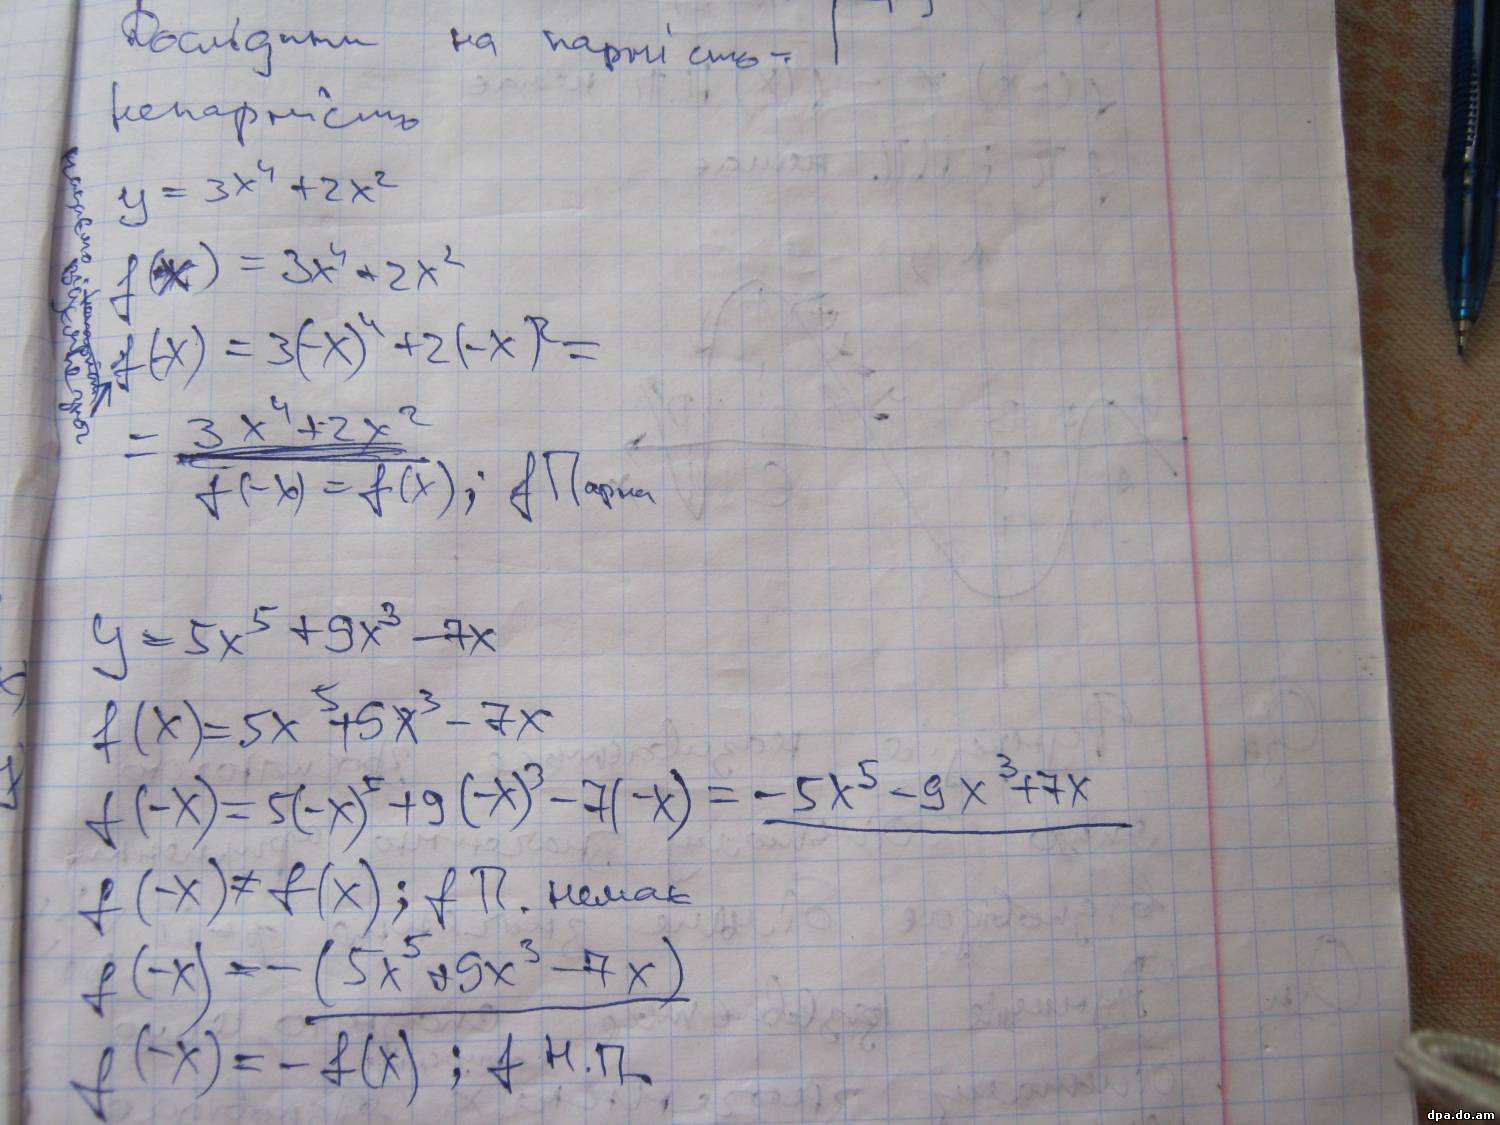 Дослідити на парність-
непарність
y = 3x⁴ + 2x²
f(x) = 3x⁴ + 2x²
f(-x) = 3(-x)⁴ + 2(-x)² =
= 3x⁴ + 2x²
f(-x) = f(x); f Парна
y = 5x⁵ + 9x³ - 7x
f(x) = 5x⁵ + 9x³ - 7x
f(-x) = 5(-x)⁵ + 9(-x)³ - 7(-x) = -5x⁵ - 9x³ + 7x
f(-x) ≠ f(x); f П. немає
f(-x) = -(5x⁵ + 9x³ - 7x)
f(-x) = -f(x); f Н.П.
dpa.do.am